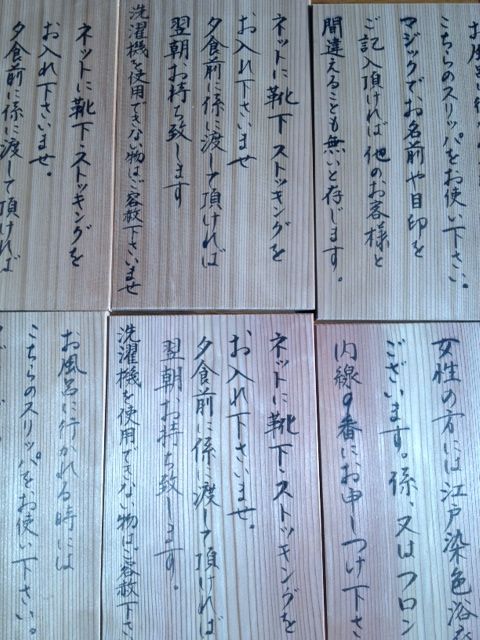 お風呂に行か
こちらのスリッパをお使い下さい。
マジックでお名前や目印を
ご記入頂ければ他のお客様と
間違えることも無いと存じます。
ネットに靴下・ストッキングを
お入れ下さいませ
夕食前に係に渡して頂ければ
翌朝お持ち致します
洗濯機を使用できない物はご容赦下さいませ
ネットに靴下・ストッキングを
お入れ下さいませ。
夕食前に係に渡して頂ければ
女性の方には江戸染色浴衣
ございます。係、又はフロン
内線9番にお申しつけ下さ
ネットに靴下・ストッキングを
お入れ下さいませ。
夕食前に係に渡して頂ければ
翌朝お持ち致します。
洗濯機を使用できない物はご容赦下さ
お風呂に行かれる時には
こちらのスリッパをお使い下さい。